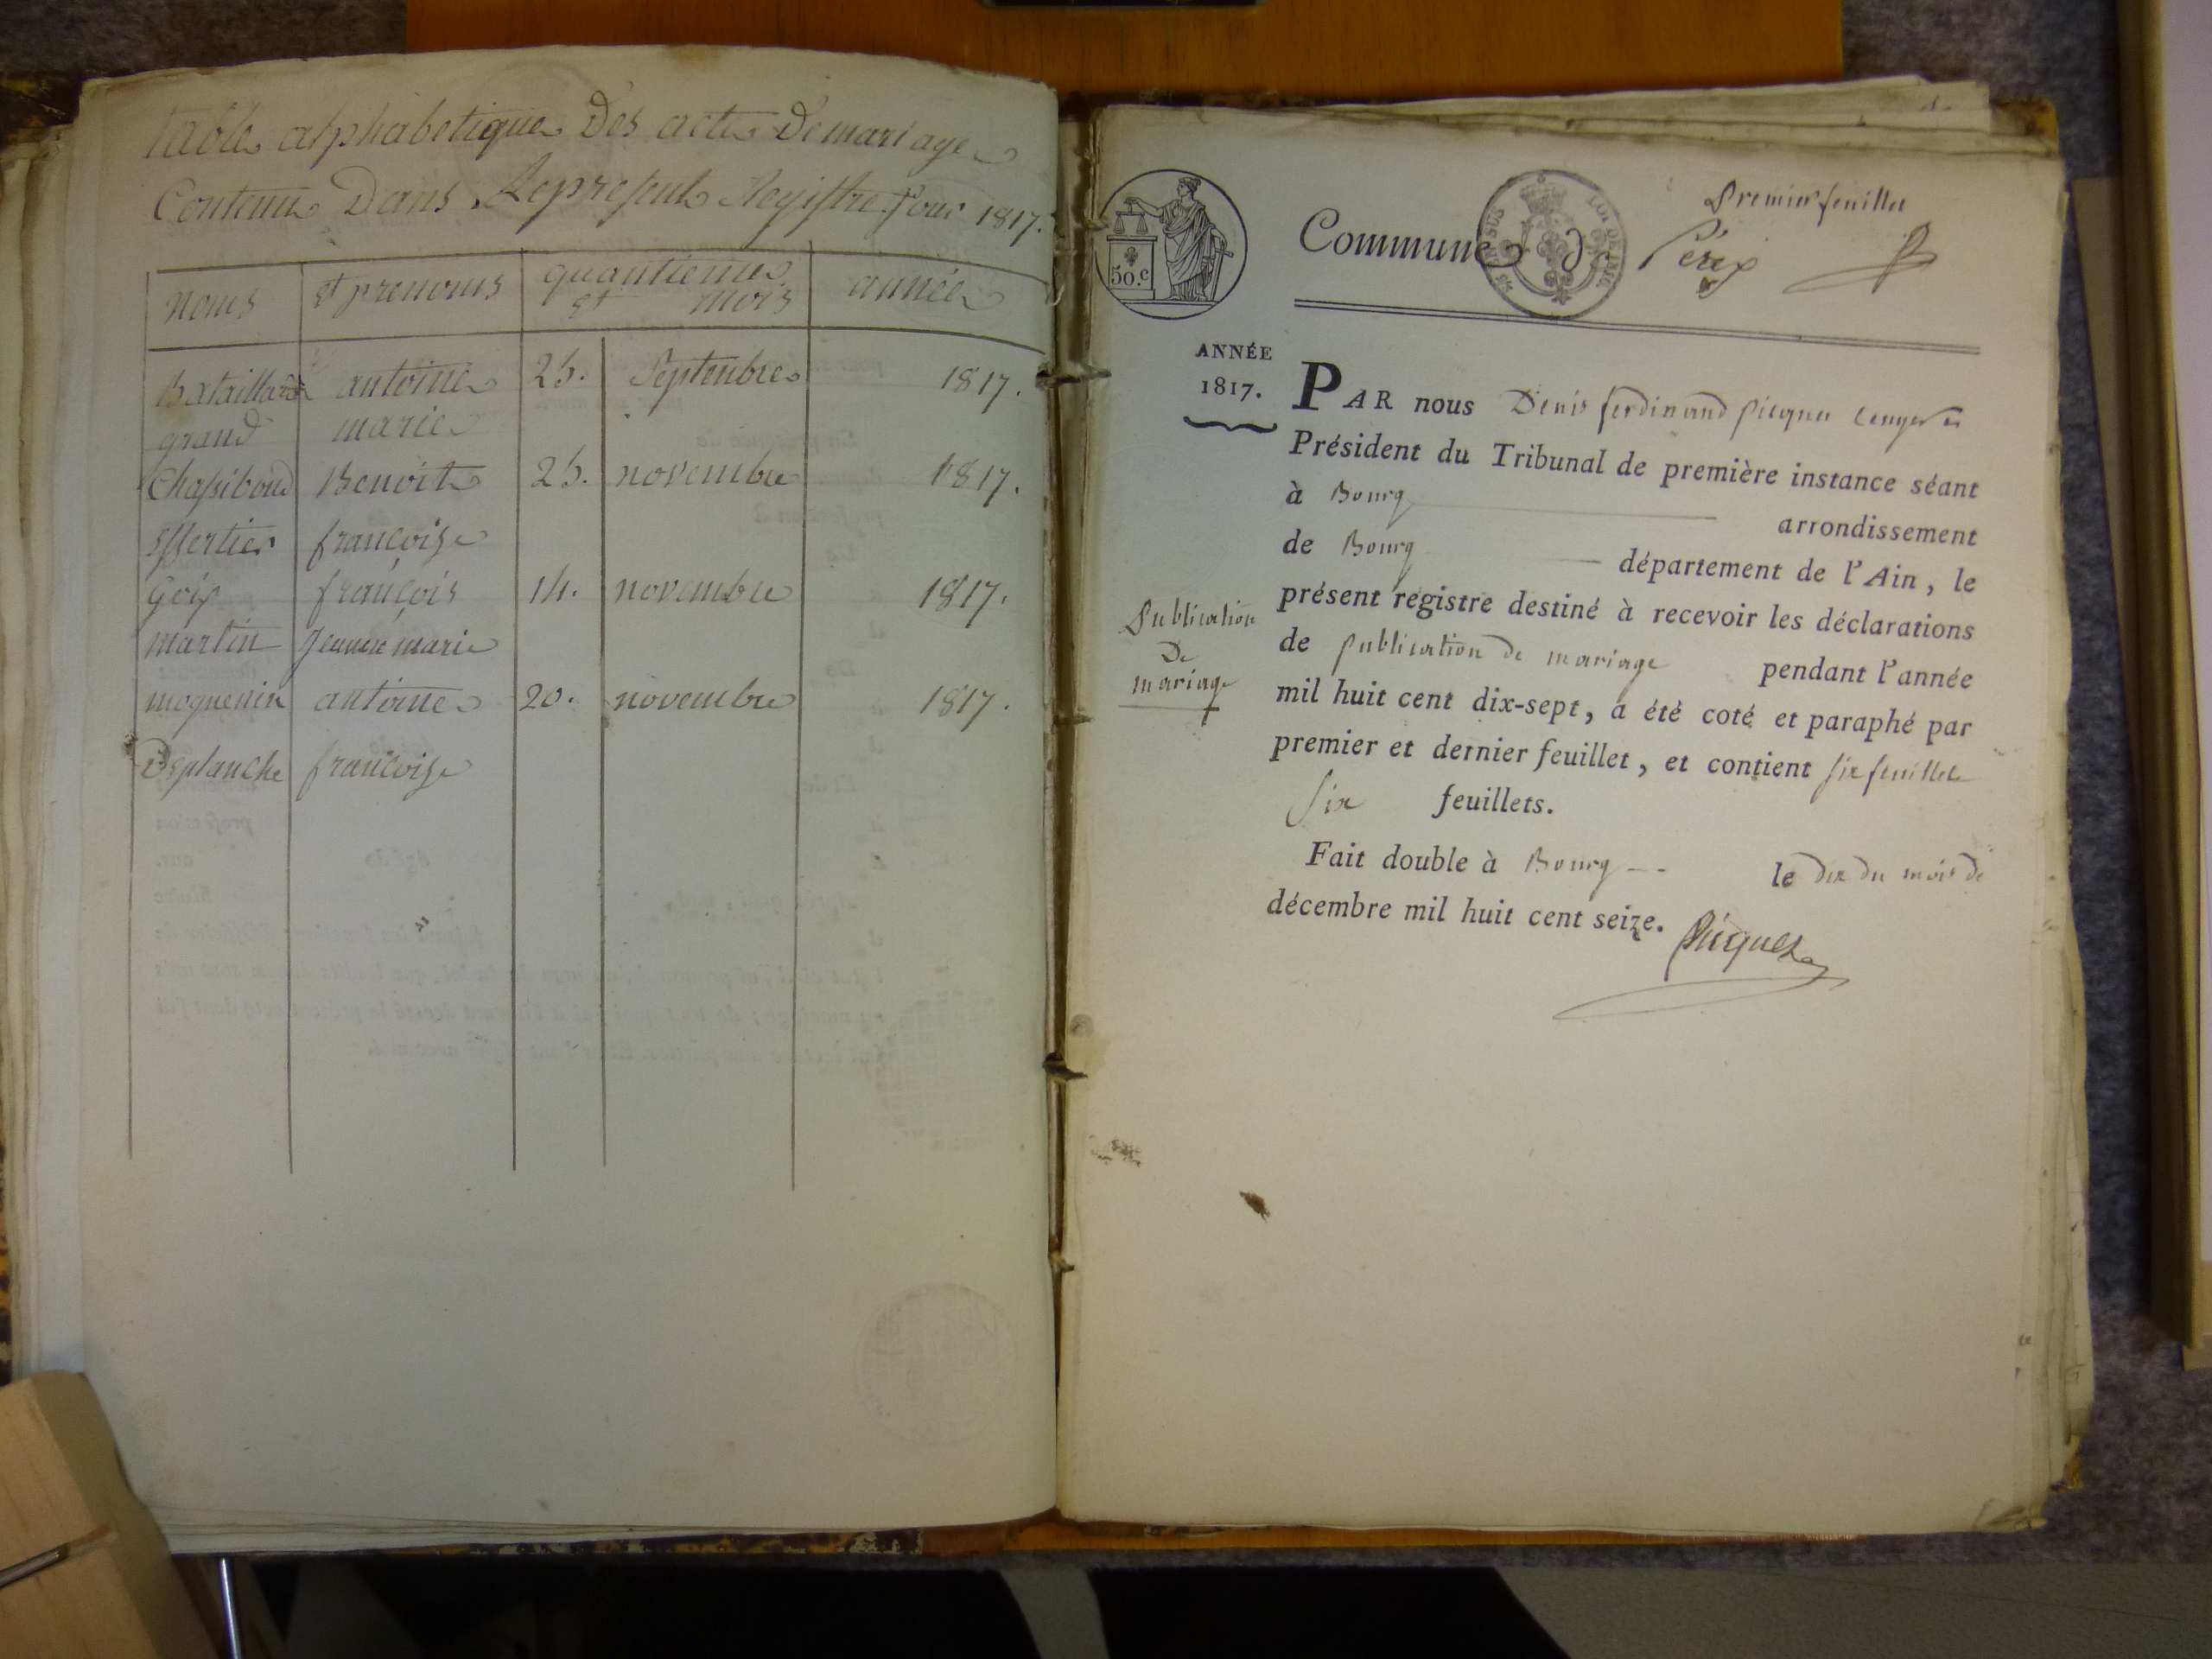 table alphabetique Des acte De mariage
Contenu Dans Le present Registre pour 1817.
noms et prenoms quantieme et mois année
Bataillard antoine 25. Septenbre 1817.
grand marie
Chassiboud Benoit 25. novembre 1817.
françoise
Goix françois 14. novembre 1817.
martin Jeanne marie
moquenin antoine 20. novembre 1817.
Deplanche françoise
Premier feuillet
50.c
Commune de Pérex
ANNÉE
1817.
PAR nous Denis ferdinand Picquet
Président du Tribunal de première instance séant
à Bourg arrondissement
de Bourg département de l'Ain, le
présent registre destiné à recevoir les déclarations
Publication
De
mariage
de publication de mariage pendant l'année
mil huit cent dix-sept, a été coté et paraphé par
premier et dernier feuillet, et contient six feuillets
six feuillets.
Fait double à Bourg -- le dix du mois de
décembre mil huit cent seize.
Picquet